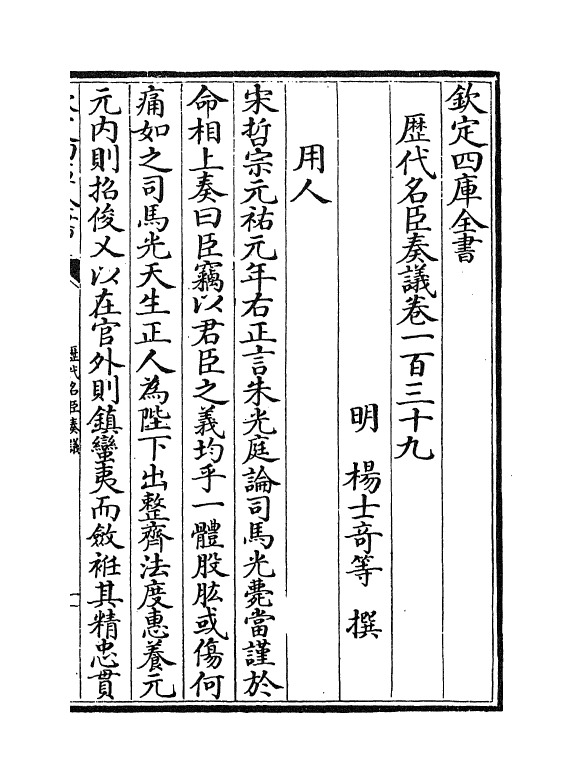 欽定四庫全書
歷代名臣奏議卷一百三十九
明 楊士奇等 撰
用人
宋哲宗元祐元年右正言朱光庭論司馬光薨當謹於
命相上奏曰臣竊以君臣之義均乎一體股肱或傷何
痛如之司馬光天生正人為陛下出整齊法度惠養元
元内則招俊乂以在官外則鎮蠻夷而斂袵其精忠貫
歷代名臣奏議